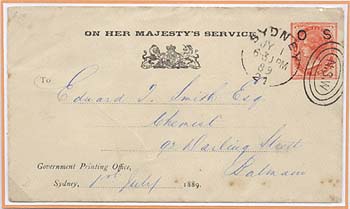 ON HER MAJESTY'S SERVICE
O S
SYDNEY
JY 1
6.30 PM
89
27
NSW
To
Edward T. Smith Esq
Chemist
93 Darling Street
Balmain
Government Printing Office,
Sydney, 1st July 1889.